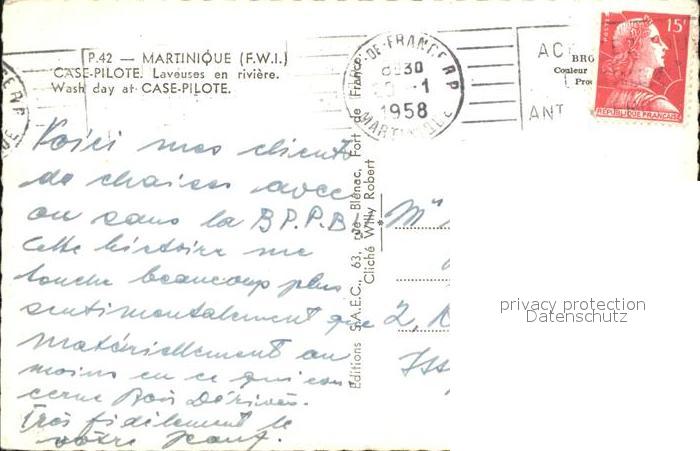 P.42 — MARTINIQUE (F.W.I.)
CASE-PILOTE. Laveuses en rivière.
Wash day at CASE-PILOTE.
FORT-DE-FRANCE RP
1958
MARTINIQUE
AC
BRO
Couleur
Pro
ANT
POSTES
15F
REPUBLIQUE FRANÇAISE
Voici mes clients
de chaises avec
ou sans la B.P.P.B.
Cette histoire me
touche beaucoup plus
sentimentalement que
matériellement au
moins en ce qui con-
cerne Bois Dérivés.
Très fidèlement le
votre
Editions S.A.E.C., 63, Rue Blénac, Fort de France
Cliché Willy Robert
M
2,
Iss
privacy protection
Datenschutz